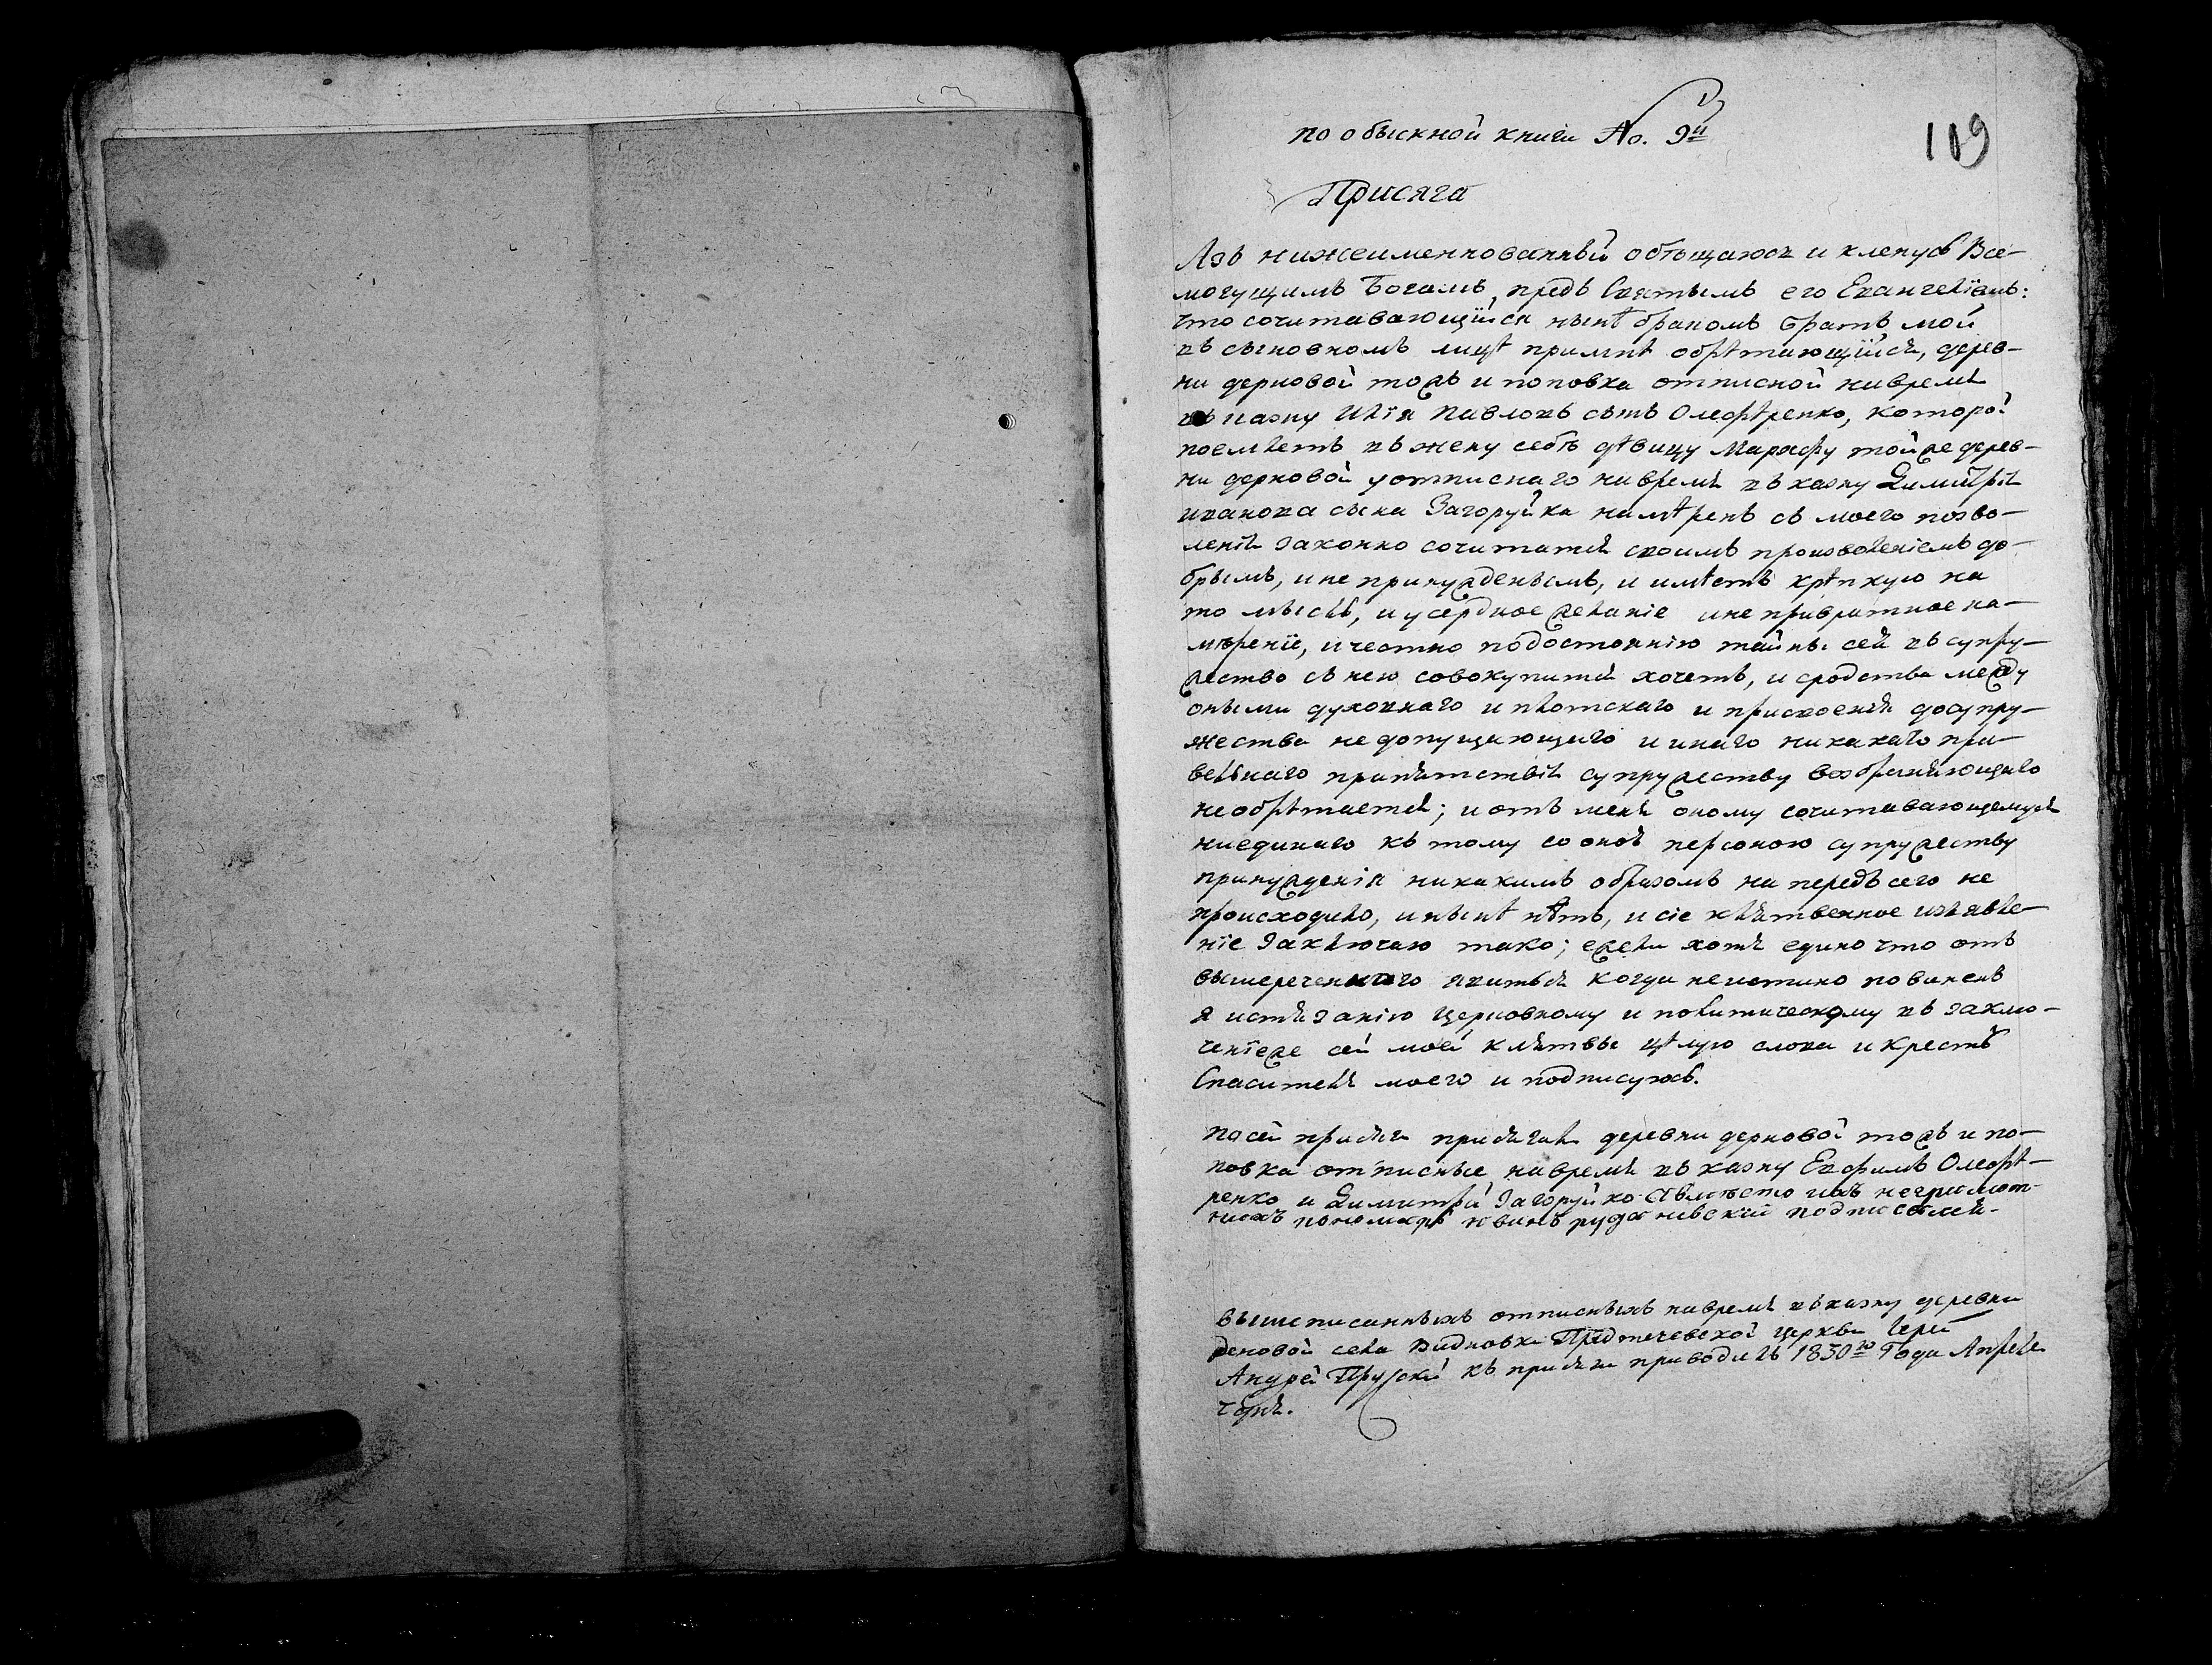 по обыскной книги No. 9й
109
Присяга
Азъ нижеименнованный обѣщаюся и кленусь Все-
могущимъ Богомъ, предъ Святымъ его Евангелїемъ:
что сочитавающїйся нынѣ бракомъ братъ мой
въ сыновномъ мицѣ примнѣ обрѣтающїйся, дерев-
ни дерновой тожъ и поповка отписной навремя
въ казну Илїя Павловъ сынъ Олефѣренко, которой
поемлетъ въ жену себѣ дѣвицу Марѳу тойже дерев-
ни дерновой у отписнаго навремя въ казну Димитрїя
иванова сына Загоруйка намѣренъ съ моего позво-
ленія законно сочитатися своимъ произволеніемъ до-
брымъ, и не принужденымъ, и имѣетъ крѣпкую на
то мысль, и усердное желаніе и не привратное на-
мѣренїе, и честно подостоянію тайны сея въ супру-
жество съ нею совокупится хочетъ, и сродства между
оными духовнаго и плотскаго и присвоенія досупру-
жества не допущающаго и инаго никакаго пра-
вельнаго припятствія супружеству возбраняющаго
необрѣтается; и отъ меня оному сочитавающемуся
ниединаго къ тому со оной персоною супружеству
принужденія никакимъ образомъ на передъ сего не
происходило, и нынѣ нѣтъ, и сіе клятвенное изъявле-
нїе заключаю тако; ежели хотя едино что отъ
вышереченнаго явиться когда неистино повиненъ
я истязанію церковному и политическому въ заклю-
ченїеже сей моей клятвы цѣлую слова и крестъ
Спасителя моего и подписуюсь.
по сей присяги присягали деревни дерновой тожъ и по-
повка отписные навремя въ казну Евфимъ Олефѣ-
ренко и Димитрїй Загоруйко авместо ихъ неграмот-
ныхъ пономарь подписался.
вышеписанныхъ отписныхъ навремя въ казну деревни
дерновой села Видновки Предтечевской церкви Іерей
Андрей Прускій къ присяги приводилъ 1830го Года Апреля
дня.